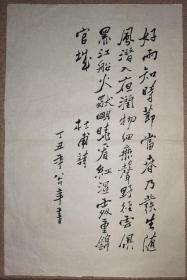 好雨知時節當春乃發生隨
風潛入夜潤物細無聲野徑雲俱
黑江船火獨明曉看紅濕處重錦
官城
杜甫詩
丁丑年書